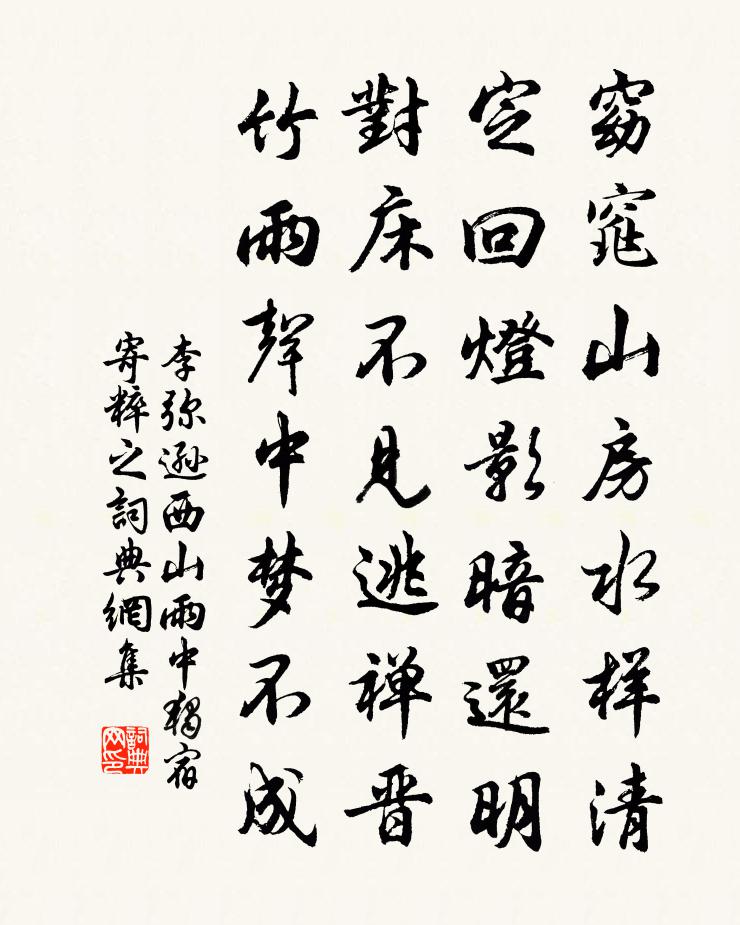 窈窕山房水样清
定回燈影暗還明
對床不見逃禅晋
竹雨聲中梦不成
李弥遜西山雨中獨宿
寄粹之詞典網集
詞典网印